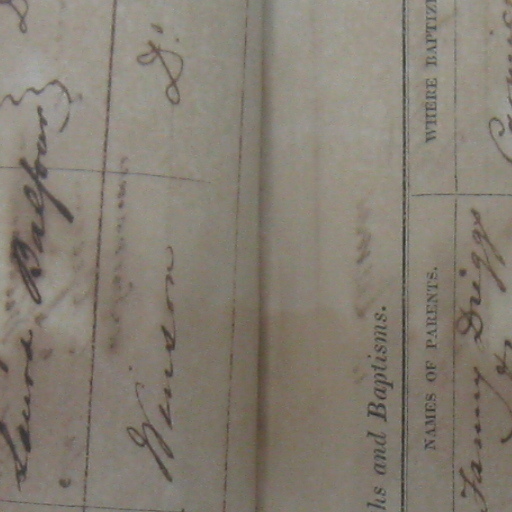 Laura Balfour
Winson D.º
hs and Baptisms.
NAMES OF PARENTS. WHERE BAPTIZ
Fanny Driggs